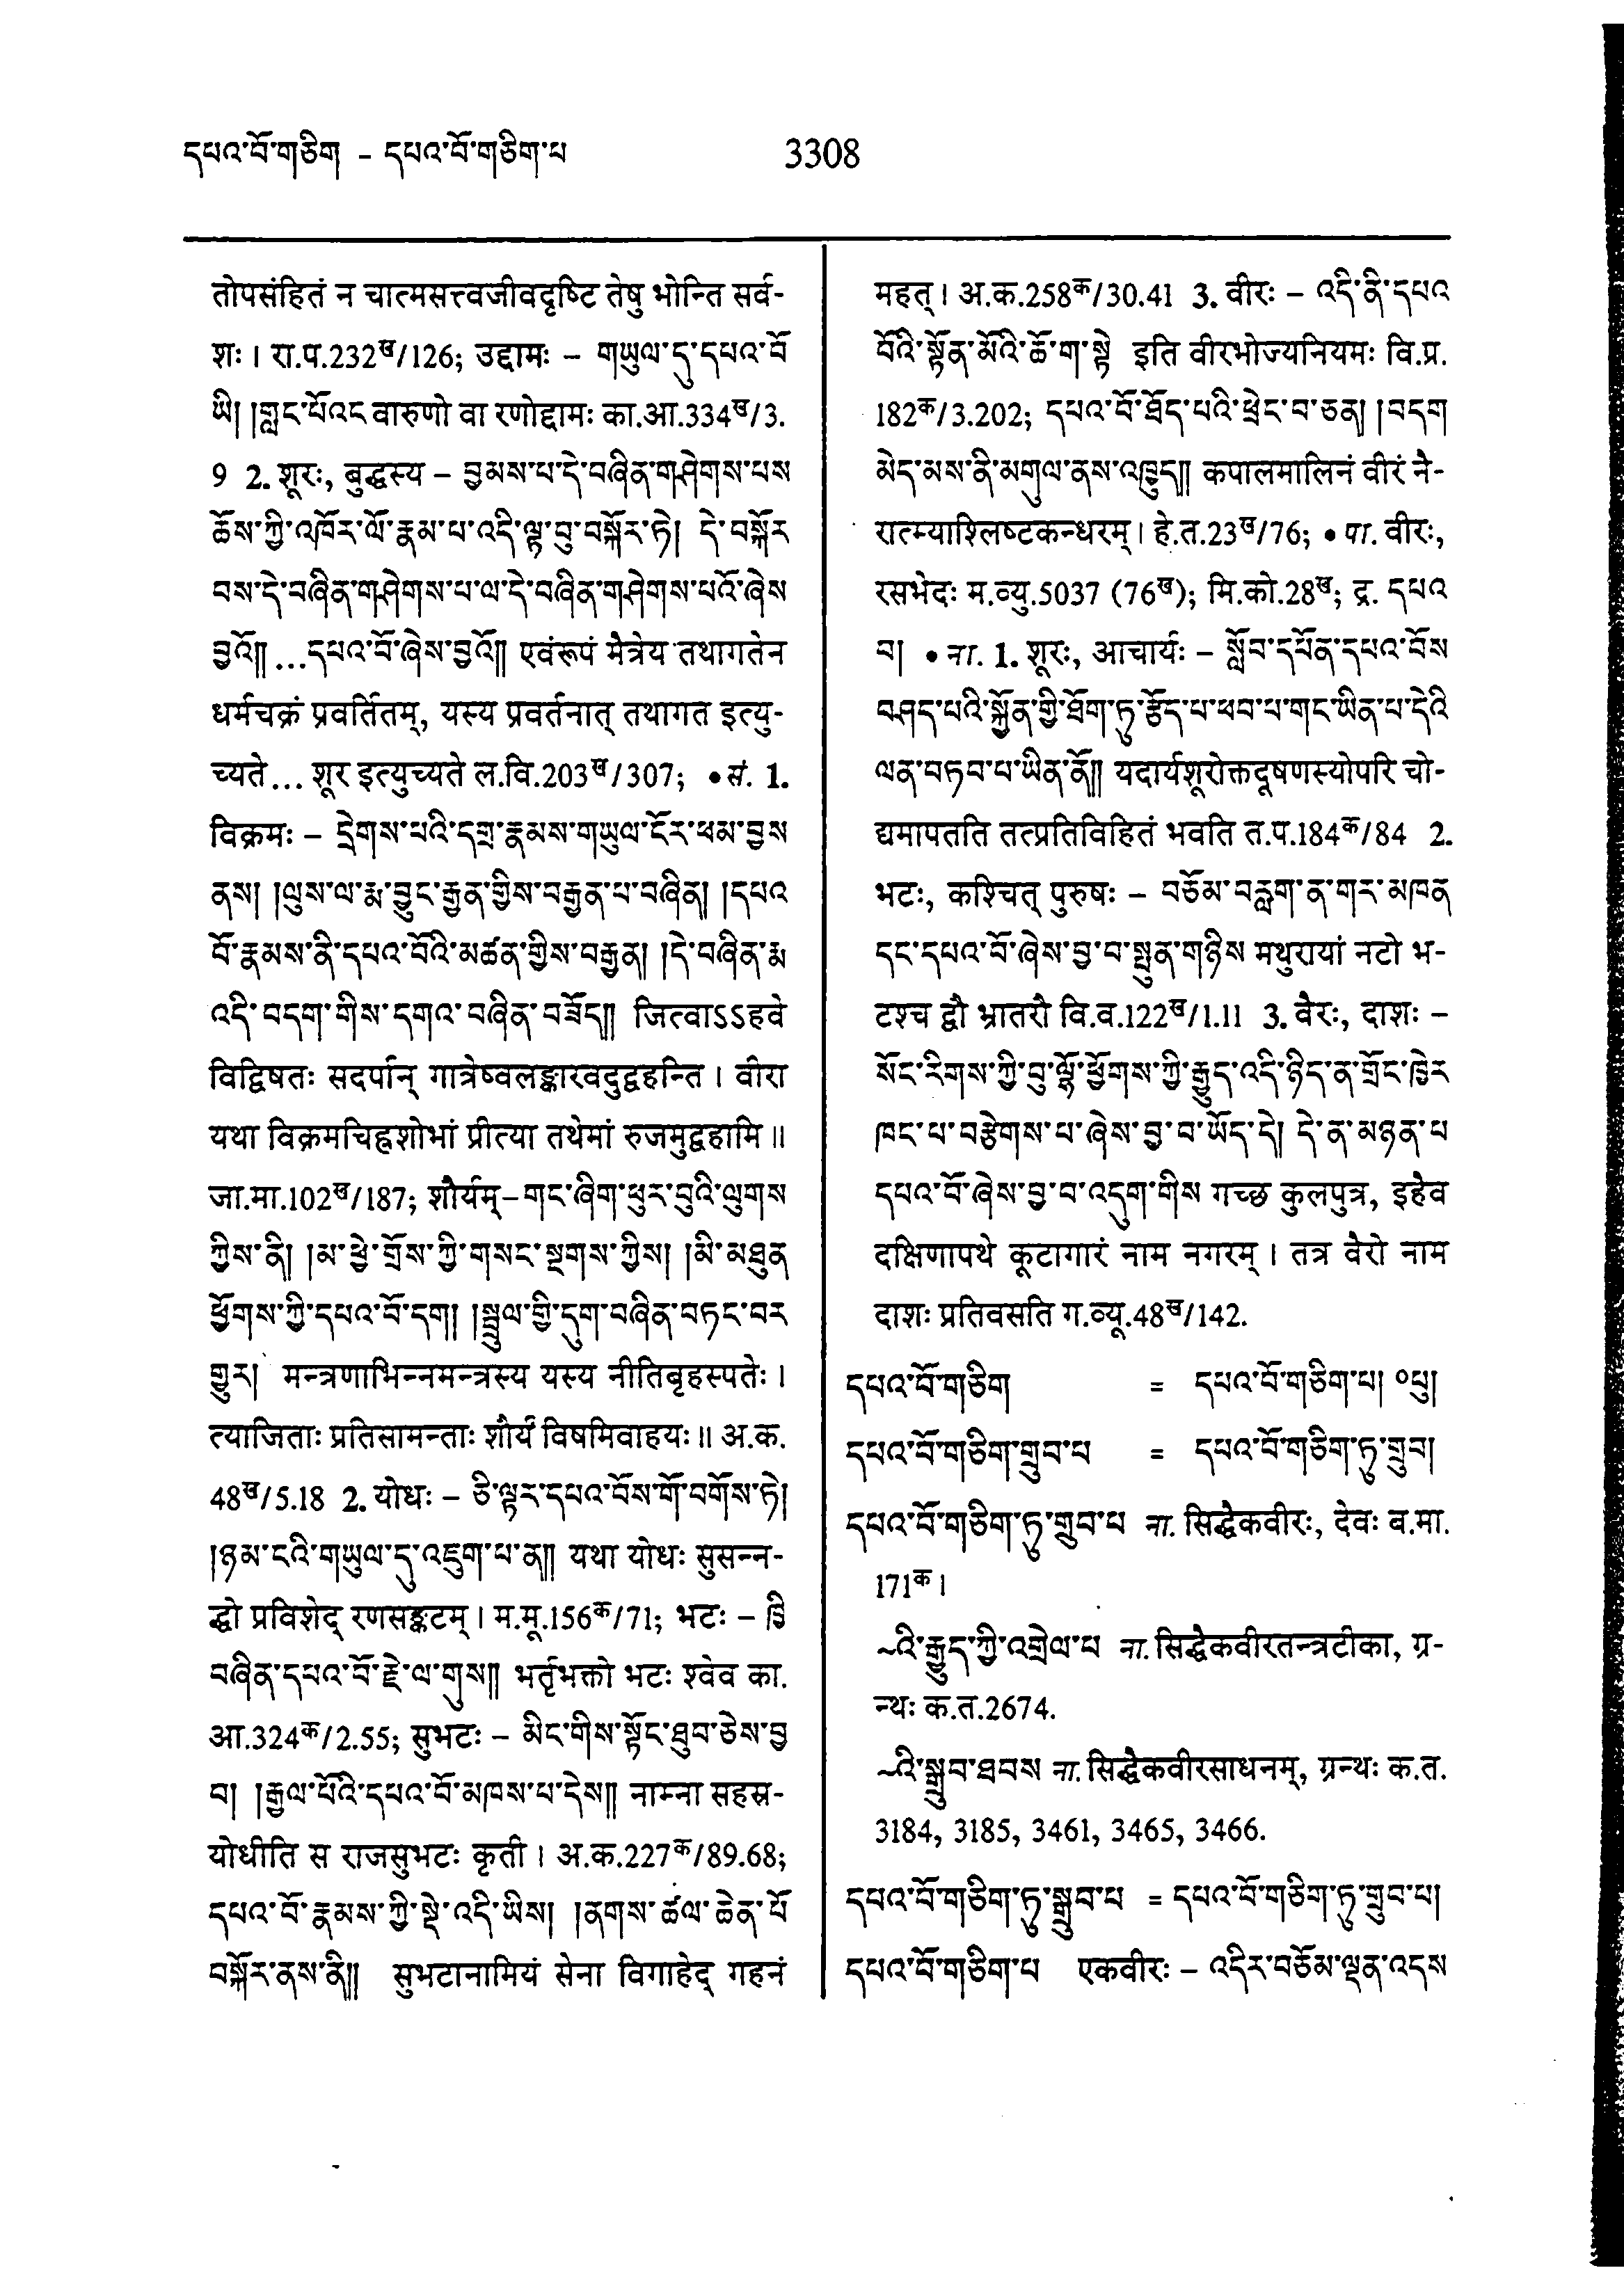 དཔའ་བོ་གཅིག – དཔའ་བོ་གཅིག་པ
3308
तोपसंहितं न चात्मसत्त्वजीवदृष्टि तेषु भोन्ति सर्व-
शः । रा.प.232ख/126; उद्दामः – གཡུལ་དུ་དཔའ་བོ
ཡི། །གླང་པོའང वारुणो वा रणोद्दामः का.आ.334ख/3.
9 2. शूरः, बुद्धस्य – བྱམས་པ་དེ་བཞིན་གཤེགས་པས
ཆོས་ཀྱི་འཁོར་ལོ་རྣམ་པ་འདི་ལྟ་བུ་བསྐོར་ཏེ། དེ་བསྐོར
བས་དེ་བཞིན་གཤེགས་པ་ལ་དེ་བཞིན་གཤེགས་པའོ་ཞེས
བྱའོ།། ...དཔའ་བོ་ཞེས་བྱའོ།། एवंरूपं मैत्रेय तथागतेन
धर्मचक्रं प्रवर्तितम्, यस्य प्रवर्तनात् तथागत इत्यु-
च्यते... शूर इत्युच्यते ल.वि.203ख/307; •सं. 1.
विक्रमः – དྲེགས་པའི་དགྲ་རྣམས་གཡུལ་ངོར་ཕམ་བྱས
ནས། །ལུས་ལ་རྨ་བྱུང་རྒྱན་གྱིས་བརྒྱན་པ་བཞིན། །དཔའ
བོ་རྣམས་ནི་དཔའ་བོའི་མཚན་གྱིས་བརྒྱན། །དེ་བཞིན་རྨ
འདི་བདག་གིས་དགའ་བཞིན་བཟོད།། जित्वाऽऽहवे
विद्विषतः सदर्पान् गात्रेष्वलङ्कारवदुद्वहन्ति । वीरा
यथा विक्रमचिह्नशोभां प्रीत्या तथेमां रुजमुद्वहामि ॥
जा.मा.102ख/187; शौर्यम्–གང་ཞིག་ཕུར་བུའི་ལུགས
ཀྱིས་ནི། །མ་ཕྱེ་གྲོས་ཀྱི་གསང་སྔགས་ཀྱིས། །མི་མཐུན
ཕྱོགས་ཀྱི་དཔའ་བོ་དག། །སྦྲུལ་གྱི་དུག་བཞིན་བཏང་བར
གྱུར། मन्त्रणाभिन्नमन्त्रस्य यस्य नीतिबृहस्पतेः ।
त्याजिताः प्रतिसामन्ताः शौर्यं विषमिवाहयः ॥ अ.क.
48ख/5.18 2. योधः – ཅི་ལྟར་དཔའ་བོས་གོ་བགོས་ཏེ།
།ཉམ་ངའི་གཡུལ་དུ་འཇུག་པ་ན།། यथा योधः सुसन्न-
द्धो प्रविशेद् रणसङ्कटम् । म.मू.156क/71; भटः – ཁྱི
བཞིན་དཔའ་བོ་རྗེ་ལ་གུས།། भर्तृभक्तो भटः श्वेव का.
आ.324क/2.55; सुभटः – མིང་གིས་སྟོང་ཐུབ་ཅེས་བྱ
བ། །རྒྱལ་པོའི་དཔའ་བོ་མཁས་པ་དེས།། नाम्ना सहस्र-
योधीति स राजसुभटः कृती । अ.क.227क/89.68;
དཔའ་བོ་རྣམས་ཀྱི་སྡེ་འདི་ཡིས། །ནགས་ཚལ་ཆེན་པོ
བསྐོར་ནས་ནི།། सुभटानामियं सेना विगाहेद् गहनं
महत् । अ.क.258क/30.41 3. वीरः – འདི་ནི་དཔའ
བོའི་སྟོན་མོའི་ཆོ་ག་སྟེ इति वीरभोज्यनियमः वि.प्र.
182क/3.202; དཔའ་བོ་ཐོད་པའི་ཕྲེང་བ་ཅན། །བདག
མེད་མས་ནི་མགུལ་ནས་འཁྱུད།། कपालमालिनं वीरं नै-
रात्म्याश्लिष्टकन्धरम् । हे.त.23ख/76; • पा. वीरः,
रसभेदः म.व्यु.5037 (76ख); मि.को.28ख; द्र. དཔའ
བ། • ना. 1. शूरः, आचार्यः – སློབ་དཔོན་དཔའ་བོས
བཤད་པའི་སྐྱོན་གྱི་ཐོག་ཏུ་རྩོད་པ་ཕབ་པ་གང་ཡིན་པ་དེའི
ལན་བཏབ་པ་ཡིན་ནོ།། यदार्यशूरोक्तदूषणस्योपरि चो-
द्यमापतति तत्प्रतिविहितं भवति त.प.184क/84 2.
भटः, कश्चित् पुरुषः – བཅོམ་བརླག་ན་གར་མཁན
དང་དཔའ་བོ་ཞེས་བྱ་བ་སྤུན་གཉིས मथुरायां नटो भ-
टश्च द्वौ भ्रातरौ वि.व.122ख/1.11 3. वैरः, दाशः –
སོང་རིགས་ཀྱི་བུ་ལྷོ་ཕྱོགས་ཀྱི་རྒྱུད་འདི་ཉིད་ན་གྲོང་ཁྱེར
ཁང་པ་བརྩེགས་པ་ཞེས་བྱ་བ་ཡོད་དེ། དེ་ན་མཉན་པ
དཔའ་བོ་ཞེས་བྱ་བ་འདུག་གིས गच्छ कुलपुत्र, इहैव
दक्षिणापथे कूटागारं नाम नगरम् । तत्र वैरो नाम
दाशः प्रतिवसति ग.व्यू.48ख/142.
དཔའ་བོ་གཅིག = དཔའ་བོ་གཅིག་པ། ॰པུ།
དཔའ་བོ་གཅིག་གྲུབ་པ = དཔའ་བོ་གཅིག་ཏུ་གྲུབ།
དཔའ་བོ་གཅིག་ཏུ་གྲུབ་པ ना. सिद्धैकवीरः, देवः ब.मा.
171क ।
~འི་རྒྱུད་ཀྱི་འགྲེལ་པ ना. सिद्धैकवीरतन्त्रटीका, ग्र-
न्थः क.त.2674.
~འི་སྒྲུབ་ཐབས ना. सिद्धैकवीरसाधनम्, ग्रन्थः क.त.
3184, 3185, 3461, 3465, 3466.
དཔའ་བོ་གཅིག་ཏུ་སྒྲུབ་པ = དཔའ་བོ་གཅིག་ཏུ་གྲུབ་པ།
དཔའ་བོ་གཅིག་པ एकवीरः – འདིར་བཅོམ་ལྡན་འདས